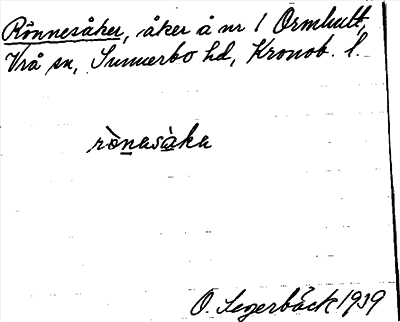 Rönnesåker, åker å nr 1 Ormhult,
Vrå sn, Sunnerbo hd, Kronob. l.
rònasàka
O. Segerbäck 1939